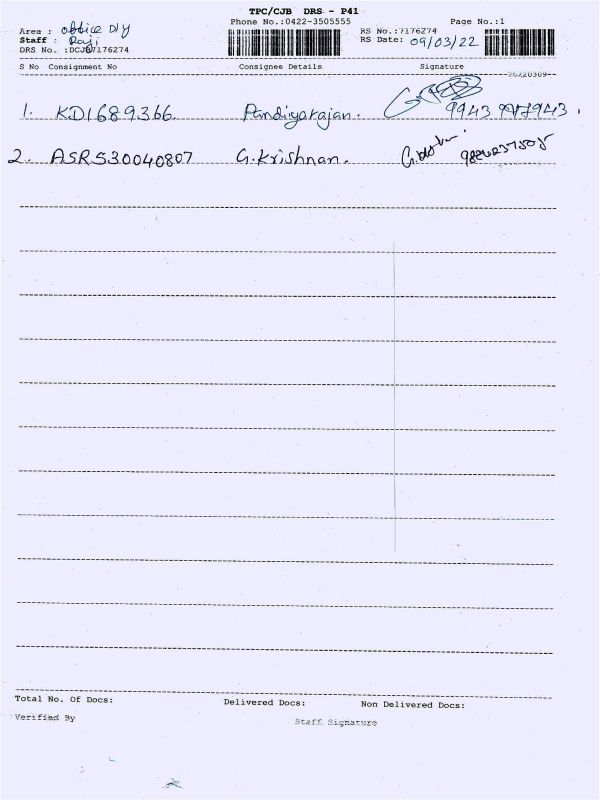 TPC/CJB DRS - P41
Phone No.:0422-3505555 Page No.:1
Area : office Dly
Staff : Raji
DRS No. :DCJB7176274
RS No.:7176274
RS Date: 09/03/22
S No Consignment No Consignee Details Signature
20220309
1. KD1689366 Pandiyarajan.
2. ASR530040807 G.Krishnan.
Total No. Of Docs: Delivered Docs: Non Delivered Docs:
Verified By Staff Signature